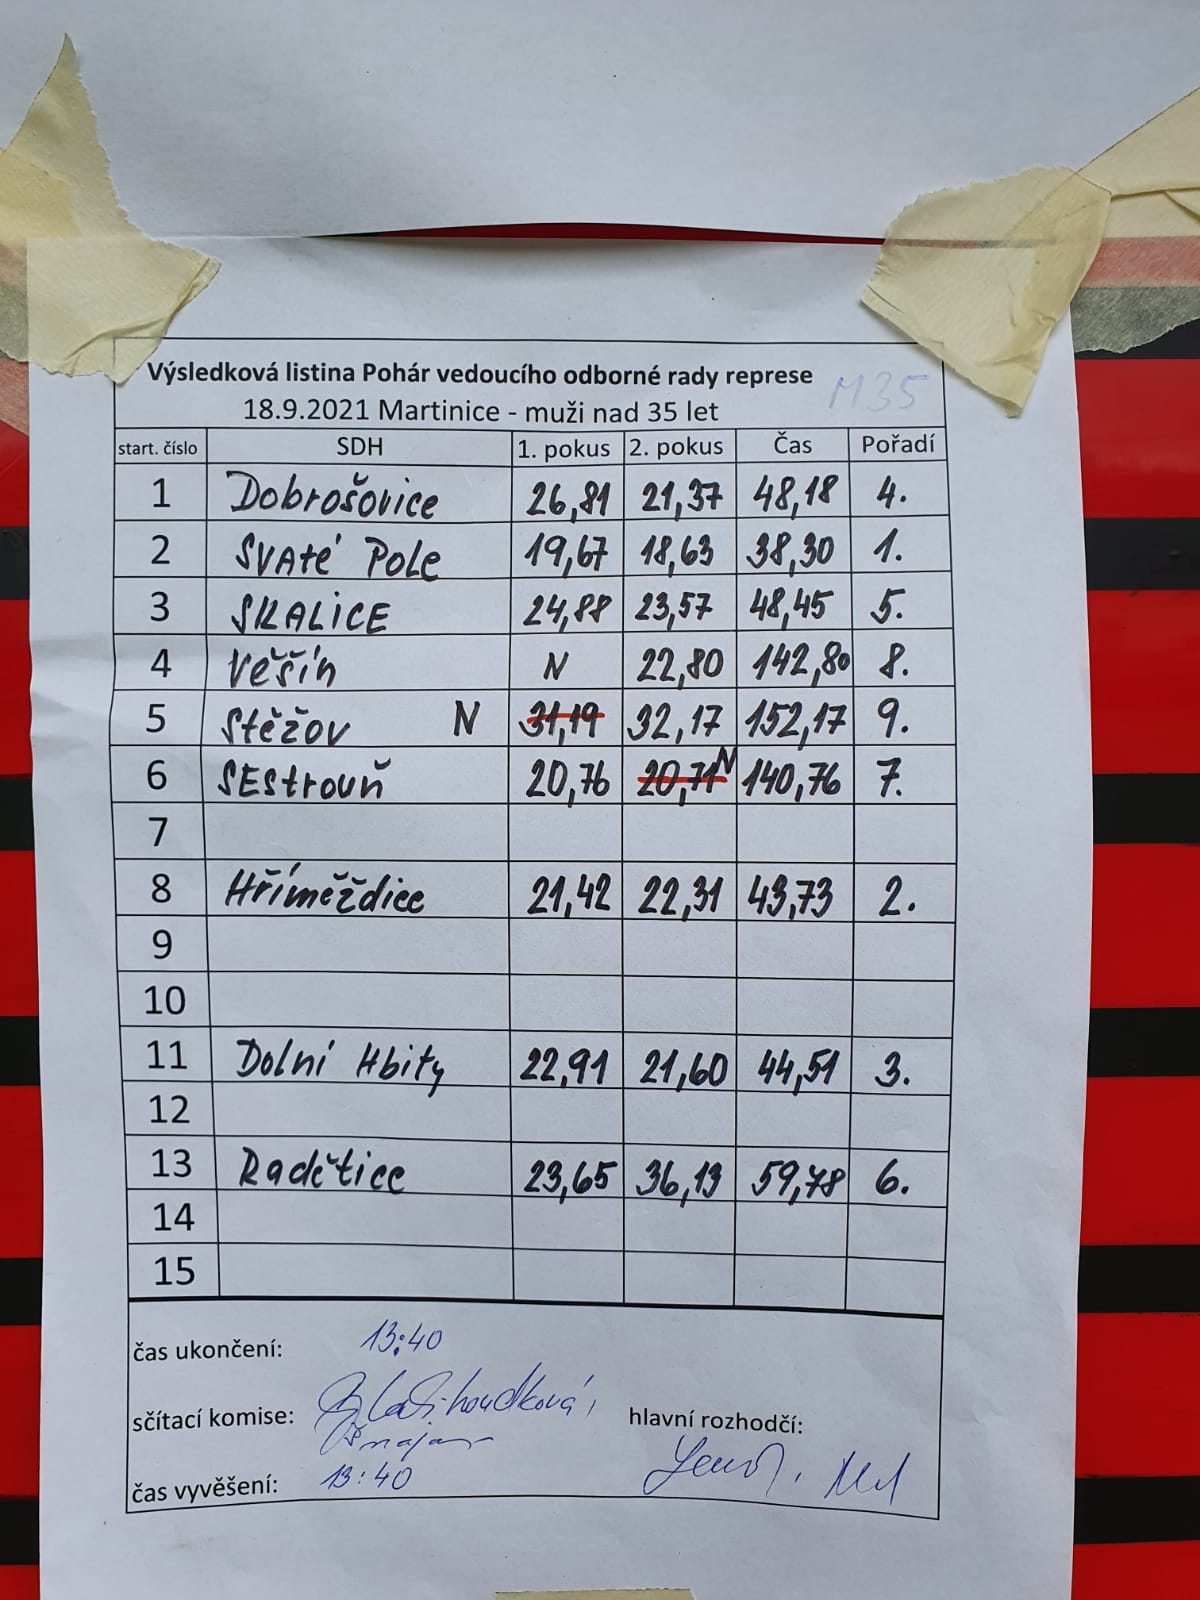 Výsledková listina Pohár vedoucího odborné rady represe M35
18.9.2021 Martinice - muži nad 35 let
start. číslo SDH 1. pokus 2. pokus Čas Pořadí
1 Dobrošovice 26,81 21,37 48,18 4.
2 SVAté POLE 19,67 18,63 38,30 1.
3 SKALICE 24,88 23,57 48,45 5.
4 Věšín N 22,80 142,80 8.
5 Stěžov N 31,19 32,17 152,17 9.
6 SEstrouň 20,76 20,71 N 140,76 7.
7
8 Hříměždice 21,42 22,31 43,73 2.
9
10
11 Dolní Hbity 22,91 21,60 44,51 3.
12
13 Radětice 23,65 36,13 59,78 6.
14
15
čas ukončení: 13:40
sčítací komise:
hlavní rozhodčí:
čas vyvěšení: 13:40